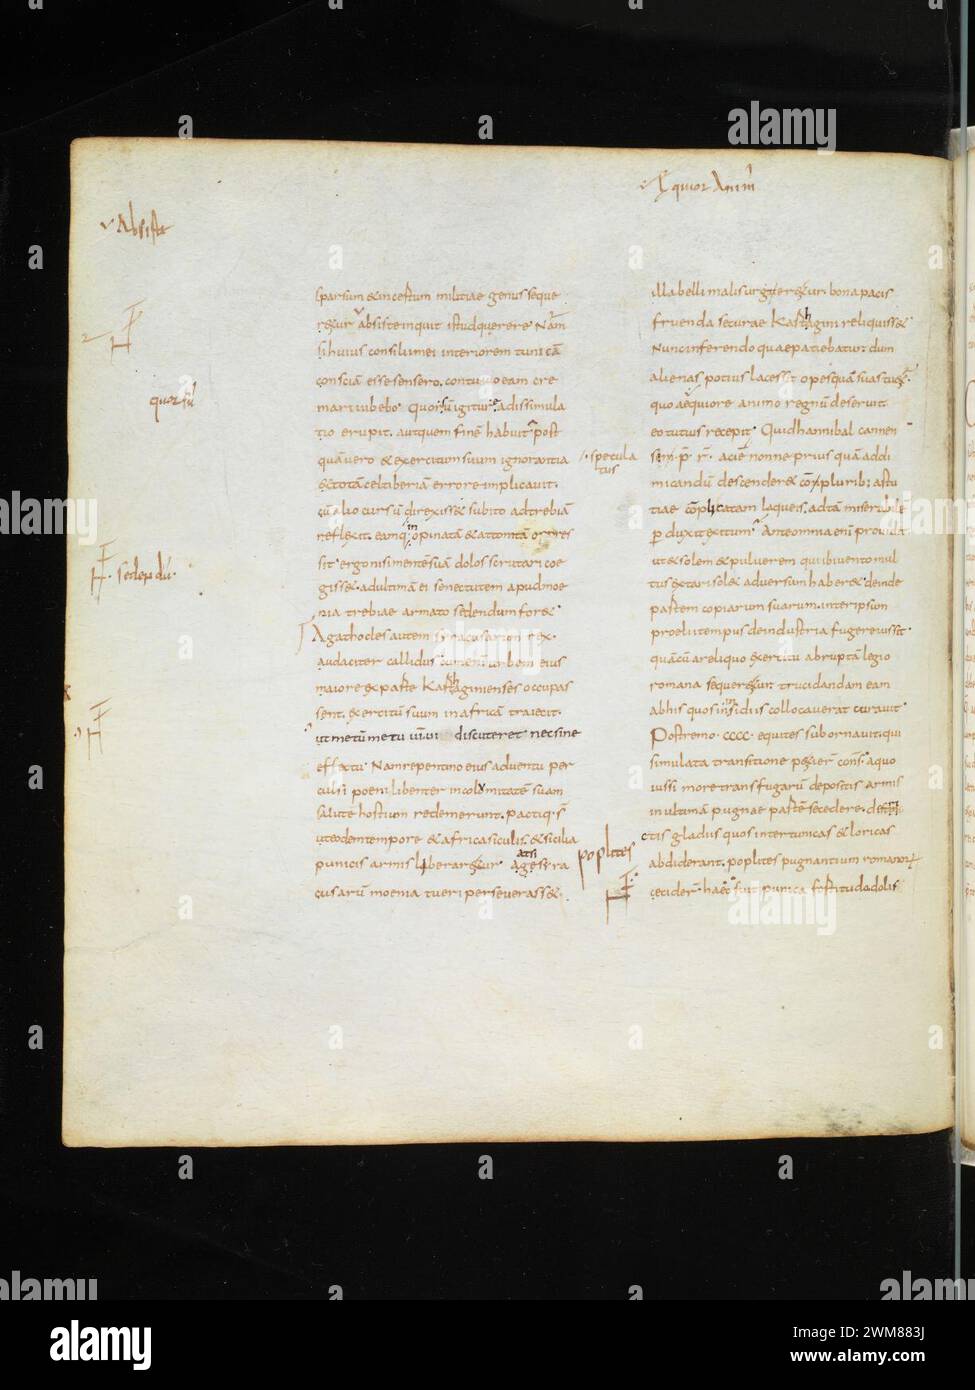 Absiste
Equior Anim
quorsū
sedepdū
specula
tus
poplites
sparsum & incestum militiae genus seque
r&ur absiste inquit istud querere Nam
si huius consilii mei interiorem tunicā
consciā esse sensero. continuo eam cre
mari iubebo. Quorsū igitur adissimula
tio erupit. autquem finē habuit post
quāvero & exercitum suum ignorantia
&totā celtiberiā errore implicavit.
cū alio cursū direxiss& subito ad trebiā
reflexit. eamq; inopinatā & attonitā oppres
sit ergo nisi mente suā dolos scrutari coe
giss&. adultimā ei senectutem apud moe
nia trebiae armato sedendum for&
Agathocles autem syracusarum rex.
audaciter callidus cum enī urbem eius
maiore ex parte Karthaginienses occupas
sent. exercitū suum in africā traiecit.
ut metū metu vim vi discuteret nec sine
effectu. Nam repentino eius adventu per
culsi poeni libenter incolumitatē suam
salute hostium redemerunt. pactiq; sī
uteodem tempore & africa siculis. & sicilia
punicis armis liberar&ur agesi ra
cusarū moenia tueri perseverass&.
illa belli malis urger&ur. bona pacis
fruenda securae Karthagini reliquiss&
Nunc inferendo quae patiebatur. dum
alienas potius lacessit opes quā suas tu&ur.
quo aequiore animo regnū deseruit
eo tutius recepit. Quid hannibal cannen
sem p̄. r̄. aciē nonne prius quā addi
micandū descender& cōplurib; astu
tiae cōplicatam laqueis. ad tā miserabile
pduxit exitum. Ante omnia enī provida
ut & solem & pulverem qui ibi vento mul
tus excitari sol& adversum haber&. deinde
partem copiarum suarum. inter ipsum
proelii tempus de industria fugere iussit.
quā cū a reliquo exercitu abruptā legio
romana sequer&ur. trucidandam eam
abhis quos in insidiis collocaverat curavit.
Postremo. cccc. equites subornavit. qui
simulata transitione peter& cons. a quo
iussi more transfugarū depositis armis
in ultimā pugnae partē secedere. destri
ctis gladiis quos inter tunicas & loricas
abdiderant. poplites pugnantium romanor
cecider. haec fuit punica fortitudo dolis
alamy
Image ID: 2WM883J
www.alamy.com